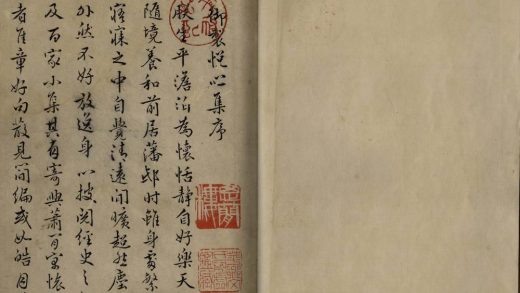 御製悅心集序
朕生平澹泊為懷恬靜自好樂天
隨境養和前居藩邸時雖身處繁
寤寐之中自覺清遠閒曠超然塵
外然不好放逸身心披閱經史之
及百家小集其有寄興蕭閒寓懷
者佳章好句散見簡編或如皓月